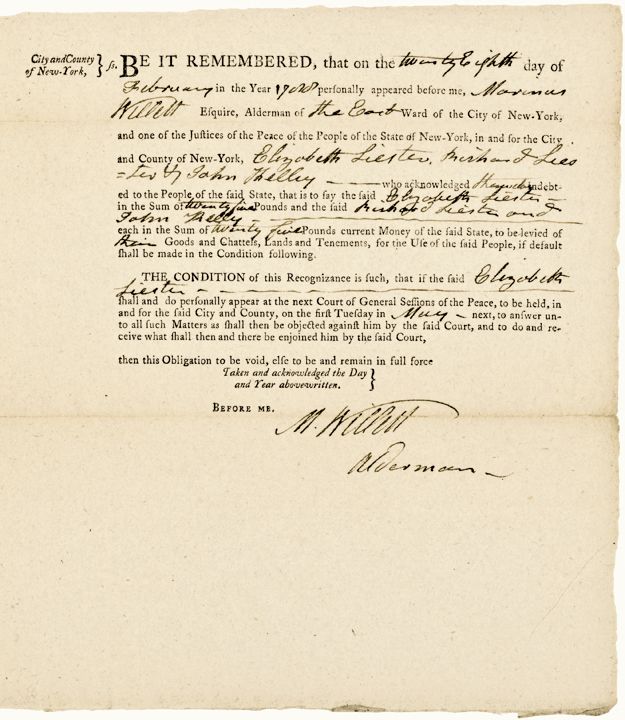 City and County of New-York, } ſs. BE IT REMEMBERED, that on the twenty Eighth day of
February in the Year 1788 personally appeared before me, Marinus
Willett Esquire, Alderman of the East Ward of the City of New-York,
and one of the Juſtices of the Peace of the People of the State of New-York, in and for the City
and County of New-York, Elizabeth Liester, Richard Lies
=ter & John Kelley — who acknowledged themselves indebt-
ed to the People of the ſaid State, that is to ſay the ſaid Elizabeth Liester —
in the Sum of twenty five Pounds and the ſaid Richard Liester and
John Kelly —
each in the Sum of twenty five Pounds current Money of the ſaid State, to be levied of
their Goods and Chattels, Lands and Tenements, for the Uſe of the ſaid People, if default
ſhall be made in the Condition following.
THE CONDITION of this Recognizance is ſuch, that if the ſaid Elizabeth
Liester —
ſhall and do perſonally appear at the next Court of General Seſſions of the Peace, to be held, in
and for the ſaid City and County, on the firſt Tueſday in May — next, to anſwer un-
to all ſuch Matters as ſhall then be objected againſt him by the ſaid Court, and to do and re-
ceive what ſhall then and there be enjoined him by the ſaid Court,
then this Obligation to be void, elſe to be and remain in full force
Taken and acknowledged the Day
and Year abovewritten. }
BEFORE ME.
M. Willett
Alderman —